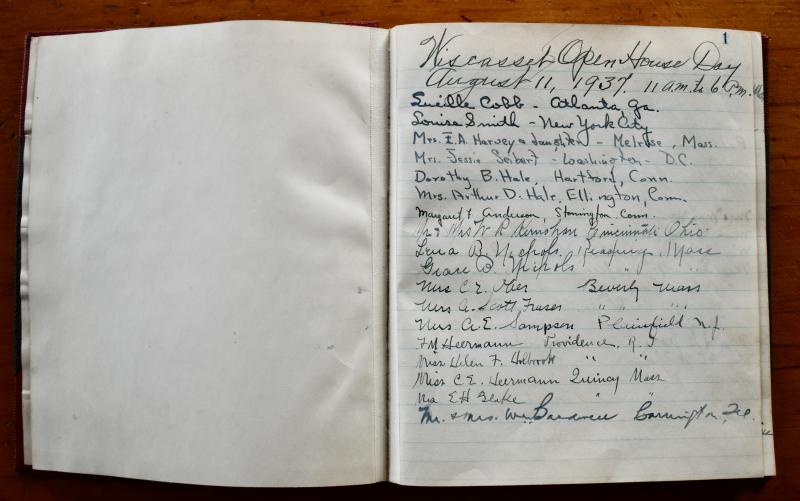 1
Wiscasset Open House Day
August 11, 1937. 11 a.m. to 6 P.M.
Lucille Cobb - Atlanta Ga.
Louise Smith - New York City
Mrs. I.A. Harvey & daughter - Melrose, Mass.
Mrs. Jessie Seibert - Washington - D.C.
Dorothy B. Hale, Hartford, Conn.
Mrs. Arthur D. Hale, Ellington, Conn.
Margaret F. Anderson, Stonington Conn.
Mr & Mrs W. R. Cincinnati Ohio
Lena B. Nichols. Reading, Mass
Grace D. Nichols " "
Mrs C. E. Beverly Mass
Mrs A. Scott Fraser " " "
Mrs A. E. Sampson Plainfield N.J.
F M Heermann Providence, R. I
Miss Helen F. Holbrook " "
Miss C. E. Heermann Quincy Mass
E H Blake " "
Mr. & Mrs. Wm.